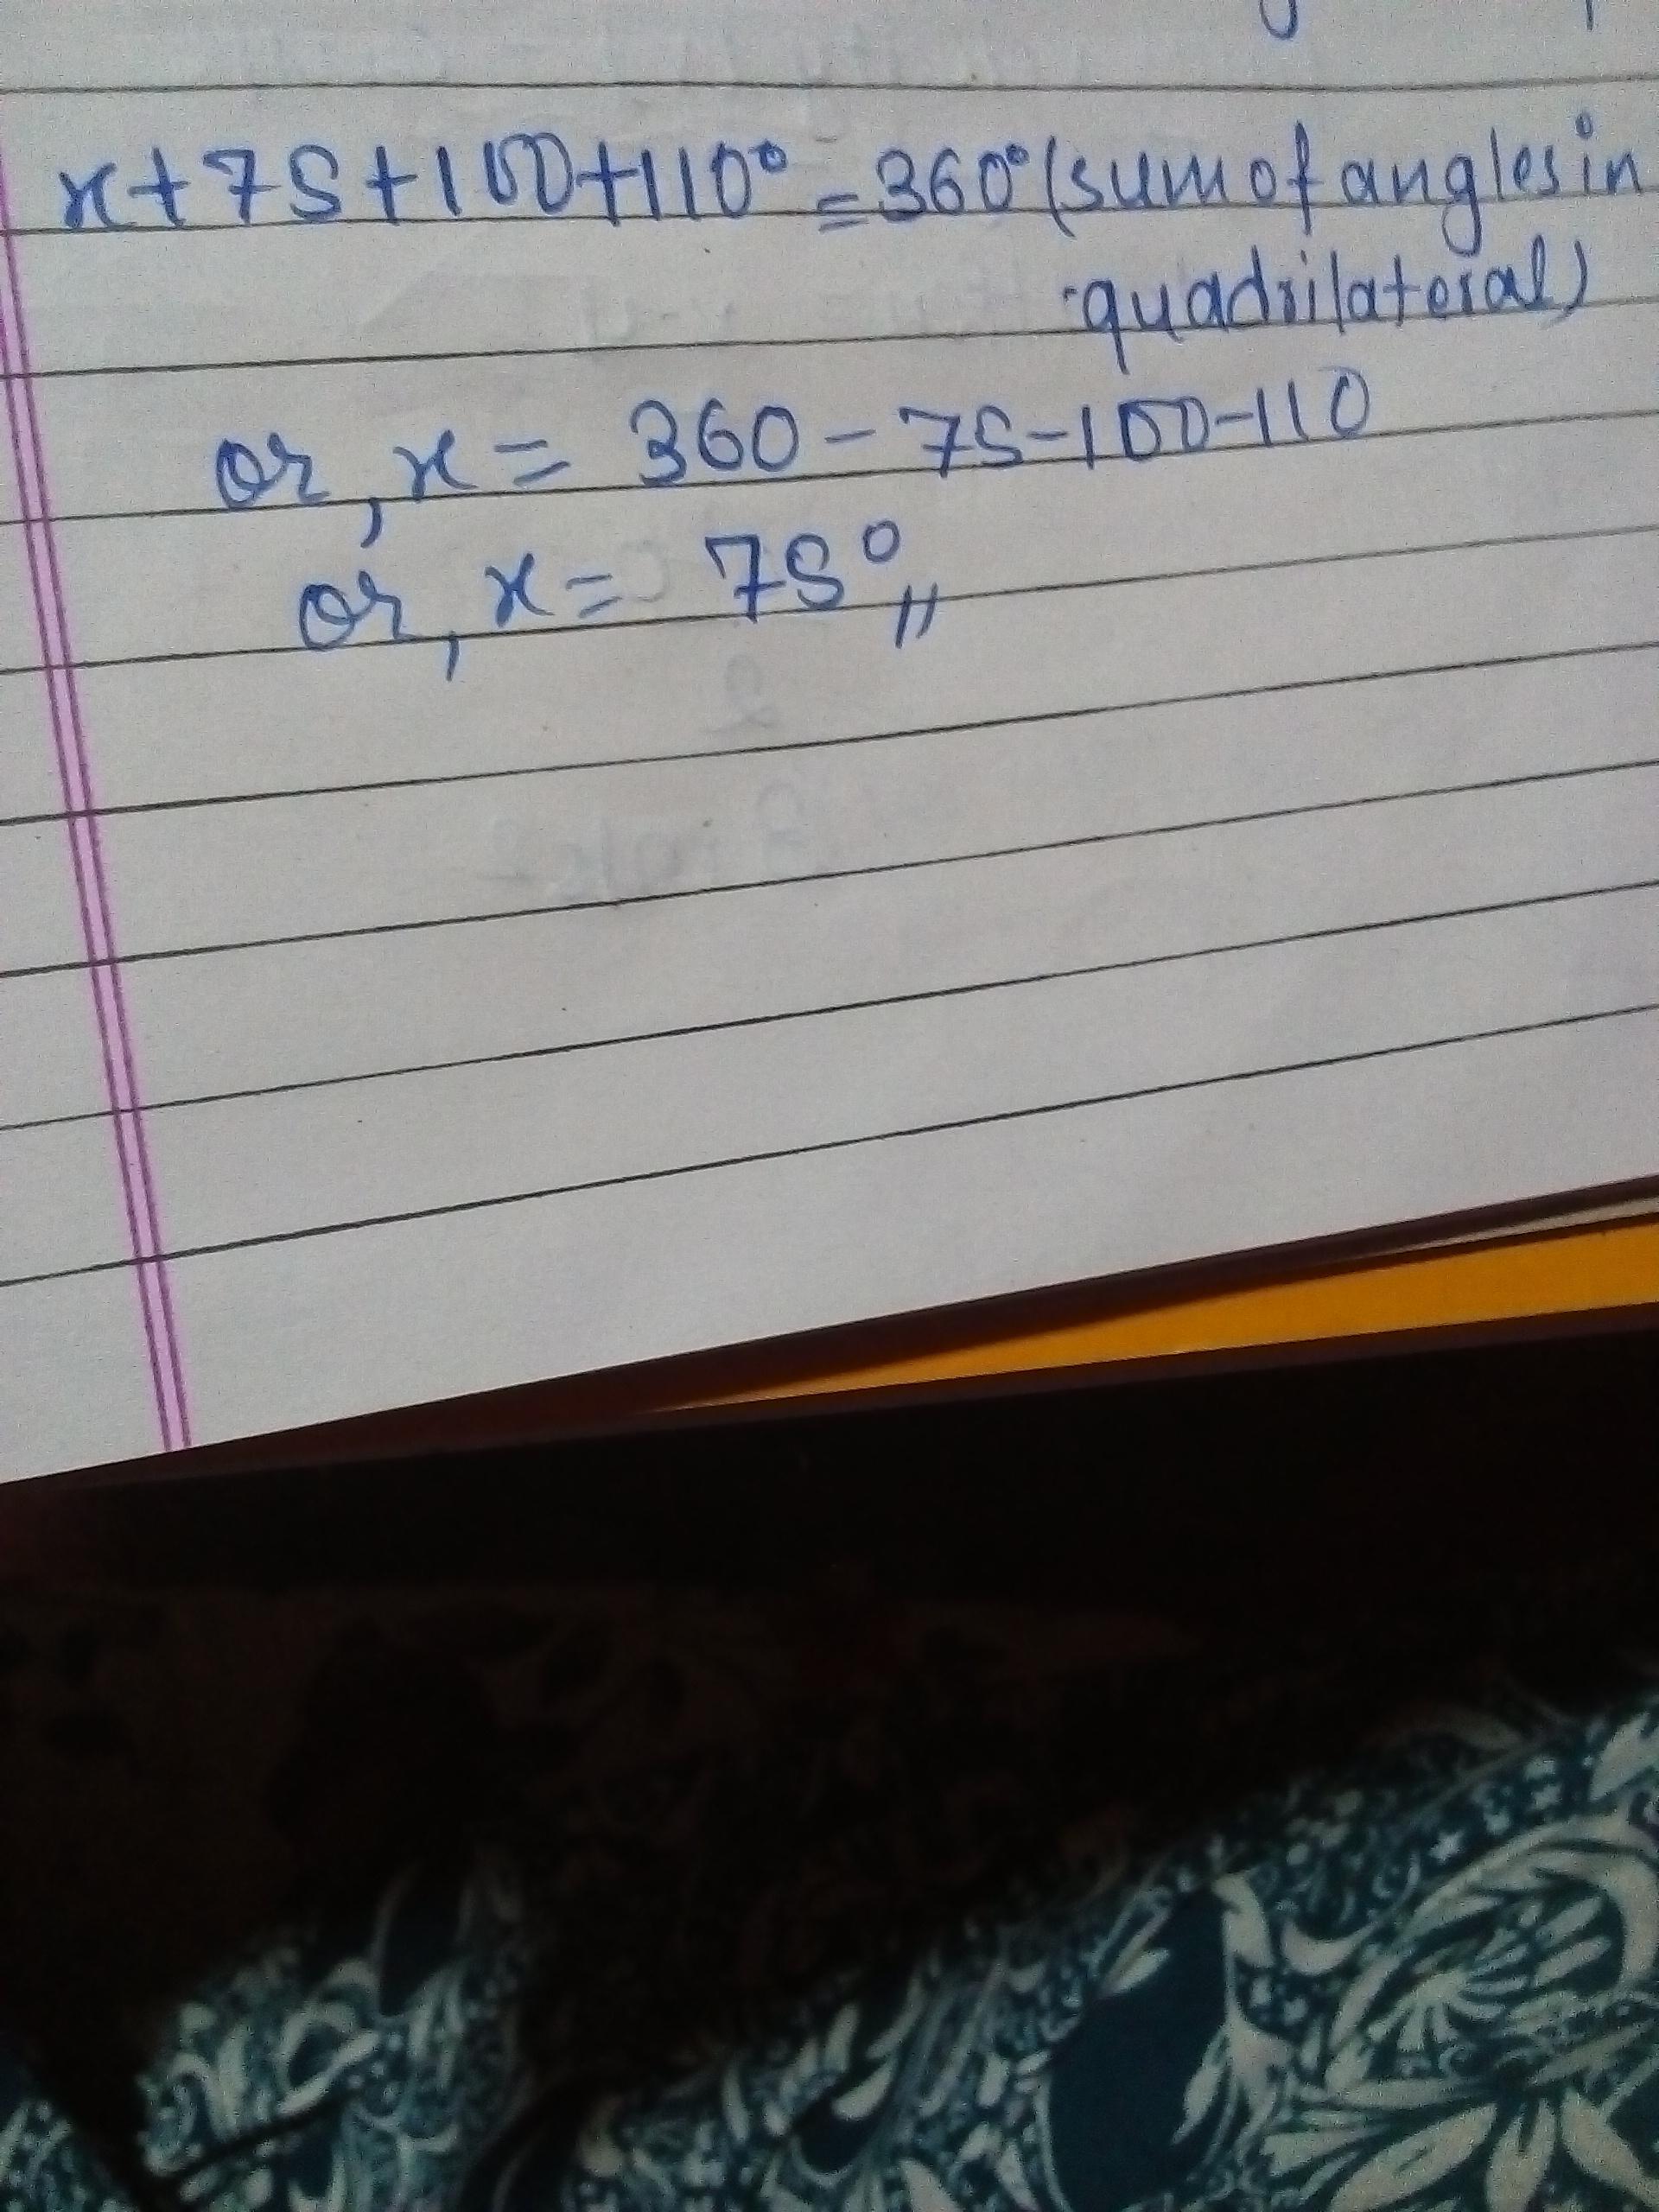 x+75+100+110°=360°(sum of angles in
quadrilateral)
or, x = 360-75-100-110
or, x = 75°,,